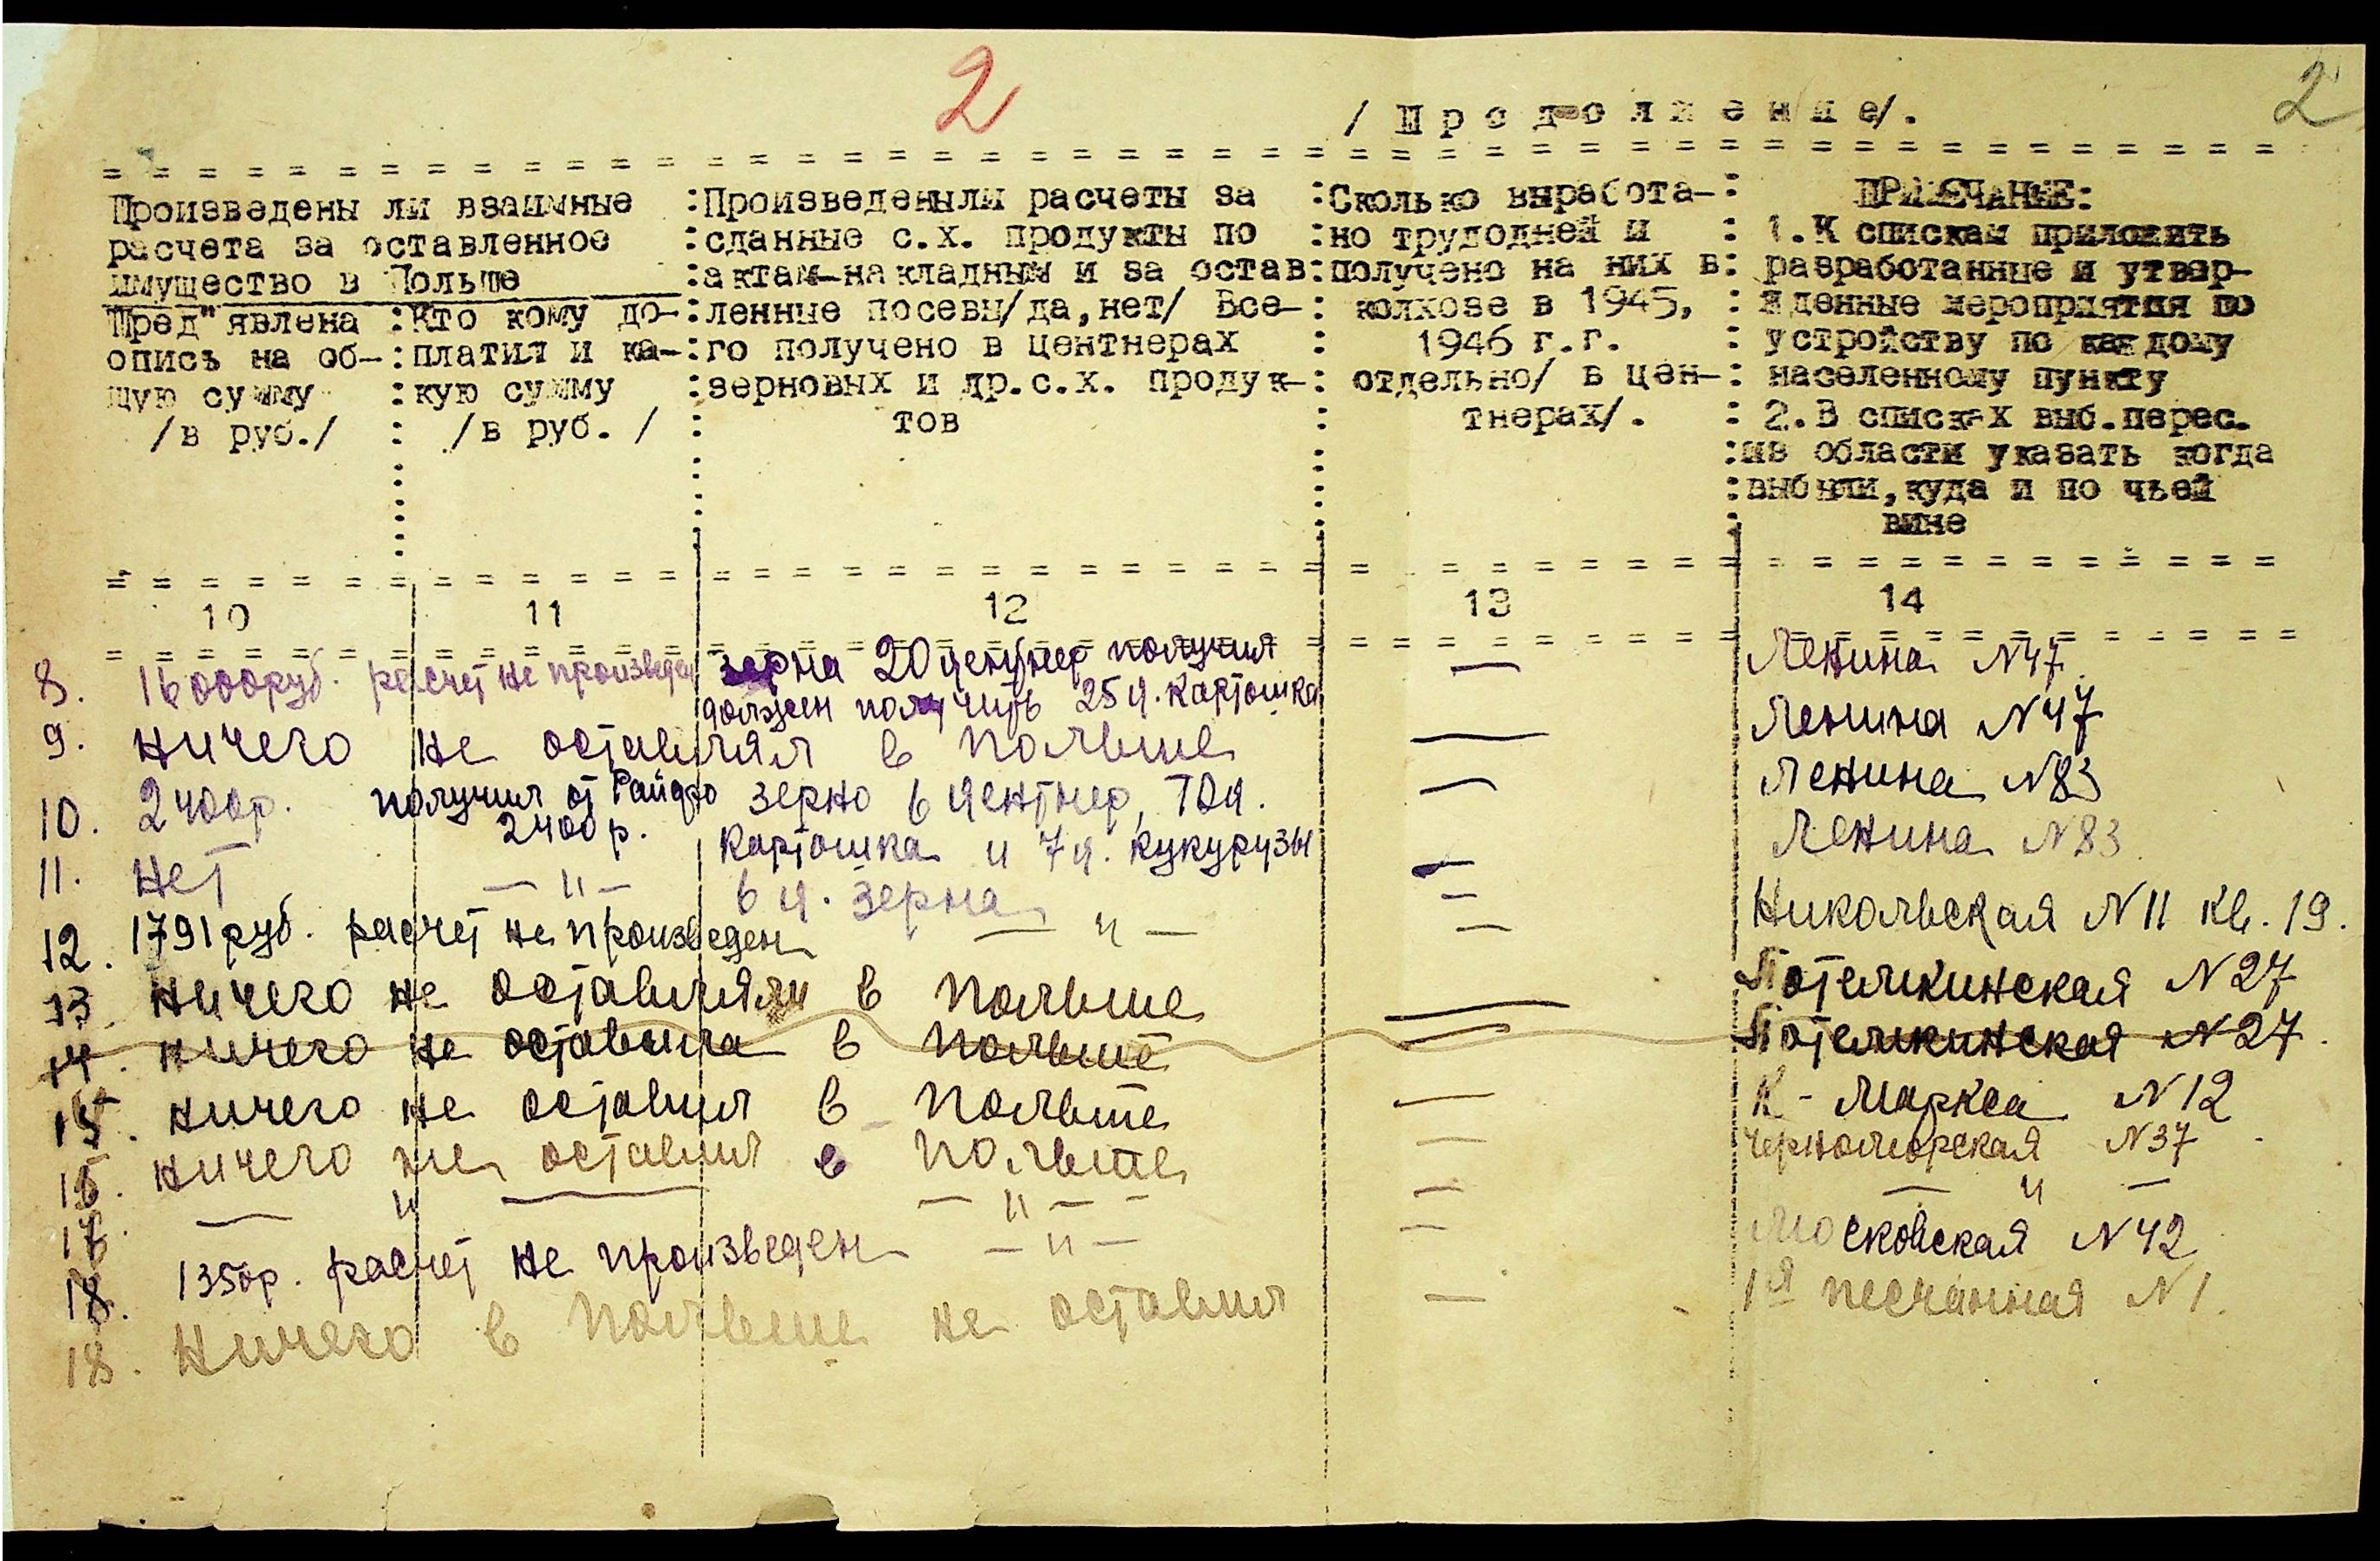 2
2
/ П р о д о л ж е н и е/.
Произведены ли взаимные :Произведеныли расчеты за :Сколько выработа-: ПРИМЕЧАНИЕ:
расчета за оставленное :сданные с.х. продукты по :но трудодней и : 1.К спискам приложить
имущество в Польше :актам-накладным и за остав:получено на них в: разработанные и утвер-
Пред"явлена :Кто кому до-:ленные посевы/да,нет/ Все-: колхозе в 1945, : жденные мероприятия по
опись на об-:платил и ка-:го получено в центнерах : 1946 г.г. : устройству по каждому
щую сумму :кую сумму :зерновых и др.с.х. продук-: отдельно/ в цен-: населенному пункту
/в руб./ : /в руб. / : тов : тнерах/. : 2.В списках выб.перес.
:из области указать когда
:выбыли,куда и по чьей
вине
10 11 12 13 14
8. 16000руб. расчет не произведен зерна 20 центнер получил — Ленина N47.
должен получить 25 ц. картошка
9. ничего не оставлял в польше — Ленина N47
10. 2400р. получил от Райфо зерно 6 центнер, 10ц. — Ленина N83
2400р. картошка и 7ц. кукурузы
11. нет — " — 6 ц. зерна — Ленина N83
12. 1791руб. расчет не произведен — " — — Никольская N11 кв. 19.
13. ничего не оставляли в польше — Потемкинская N27
14. ничего не оставила в польше — Потемкинская N27.
15. ничего не оставил в польше — К-Маркса N12
16. ничего не оставил в польше — Черноморская N37
17. — " — — " — — — " —
18. 1350р. расчет не произведен — " — — Московская N42
18. ничего в польше не оставил — 1я песчанная N1.